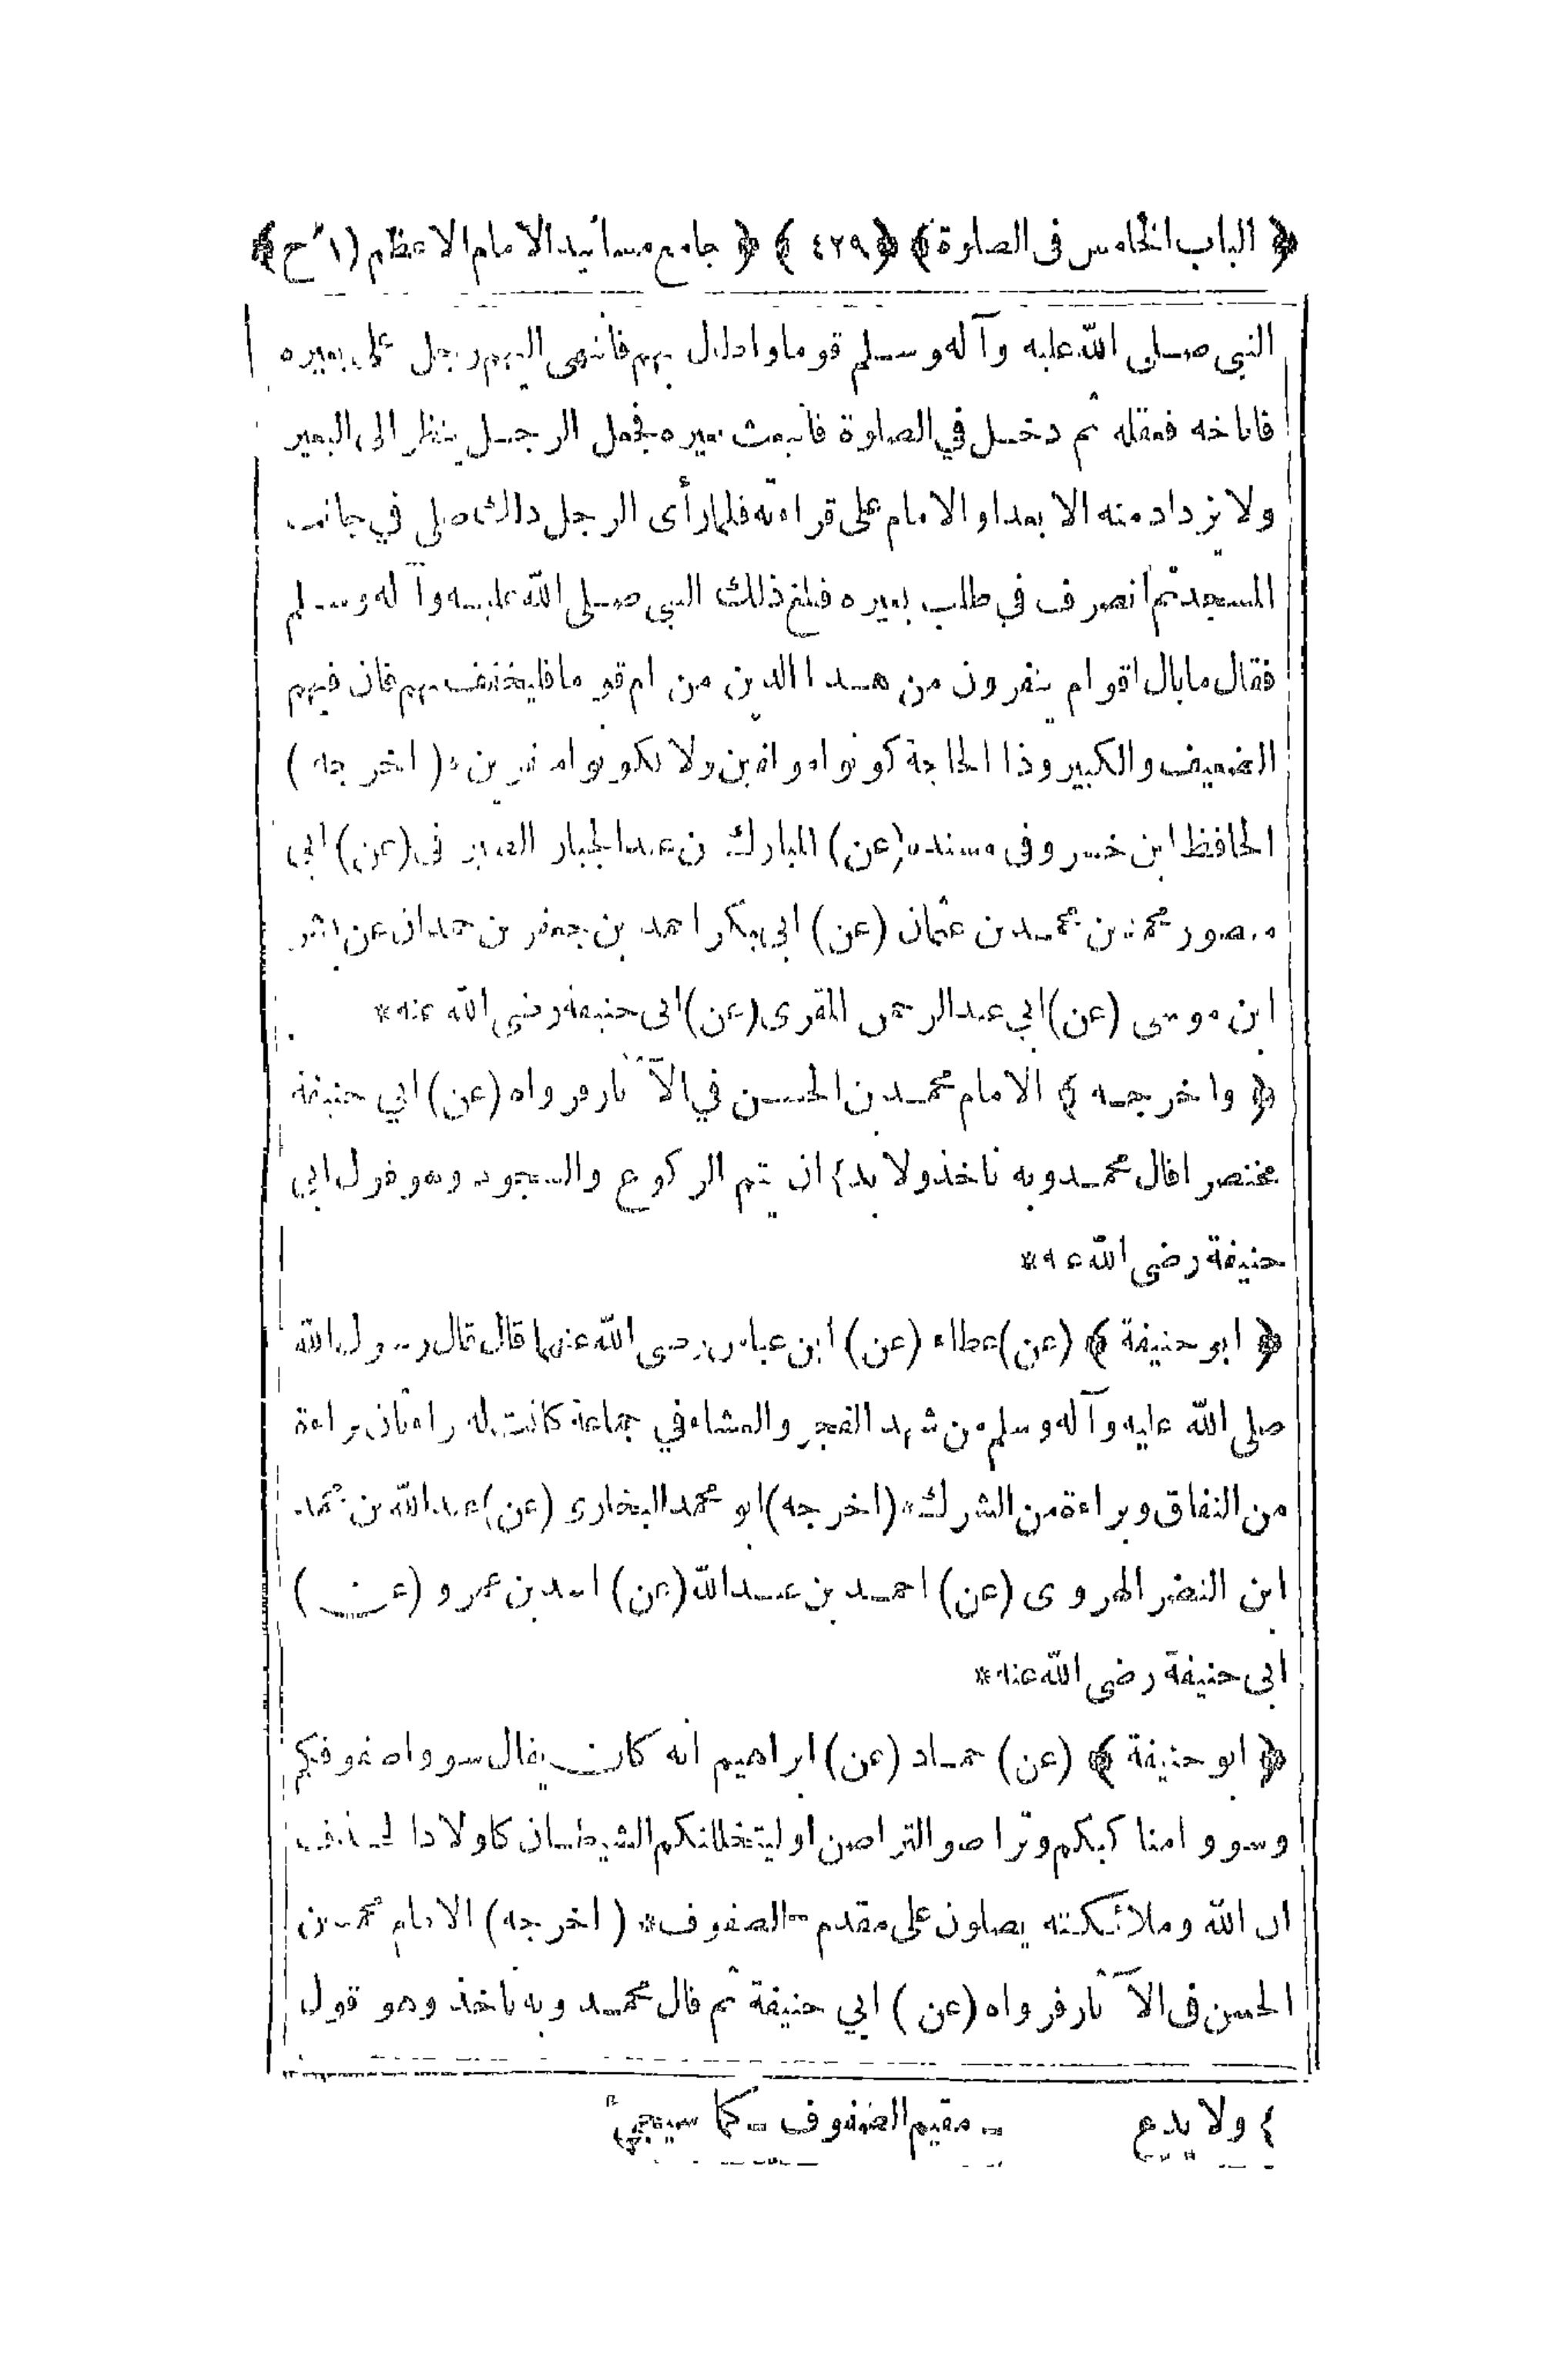 ﴿ الباب الخامس فى الصلوة ﴾ ﴿ ٤٢٩ ﴾ ﴿ جامع مسانيد الامام الاعظم (١ ج) ﴾
النبي صلى الله عليه وآله وسلم قوما واطال بهم فانتهى اليهم رجل على بعيره
فاناخه فعقله ثم دخل في الصلوة فانبعث بعيره فجعل الرجل ينظر الى البعير
ولا يزداد منه الا بعدا والامام على قراءته فلما رأى الرجل ذلك صلى في جانب
المسجد ثم انصرف في طلب بعيره فبلغ ذلك النبي صلى الله عليه وآله وسلم
فقال ما بال اقوام ينفرون من هذا الدين من ام قوما فليخفف بهم فان فيهم
الضعيف والكبير وذا الحاجة كونوا مؤلفين ولا تكونوا منفرين * ( اخرجه )
الحافظ ابن خسرو فى مسنده (عن) المبارك بن عبد الجبار الصيرفى (عن) ابي
منصور محمد بن محمد بن عثمان (عن) ابى بكر احمد بن جعفر بن حمدان عن بشر
ابن موسى (عن) ابي عبد الرحمن المقرى (عن) ابى حنيفة رضي الله عنه *
﴿ واخرجه ﴾ الامام محمد بن الحسن في الآثار فرواه (عن) ابي حنيفة
مختصرا قال محمد وبه ناخذ ولا بد ٤ ان يتم الركوع والسجود وهو قول ابي
حنيفة رضى الله عنه *
﴿ ابو حنيفة ﴾ (عن) عطاء (عن) ابن عباس رضى الله عنهما قال قال رسول الله
صلى الله عليه وآله وسلم من شهد الفجر والعشاء في جماعة كانت له براءتان براءة
من النفاق وبراءة من الشرك * (اخرجه) ابو محمد البخارى (عن) عبد الله بن محمد
ابن النضر الهروى (عن) احمد بن عبد الله (عن) اسد بن عمرو (عن)
ابى حنيفة رضي الله عنه *
﴿ ابو حنيفة ﴾ (عن) حماد (عن) ابراهيم انه كان يقال سووا صفوفكم
وسووا مناكبكم وتراصوا لتراصن او ليتخللنكم الشيطان كاولاد الحذف
ان الله وملائكته يصلون على مقدم - الصفوف * ( اخرجه) الامام محمد بن
الحسن فى الآثار فرواه (عن ) ابي حنيفة ثم قال محمد وبه ناخذ وهو قول
٤ ولا يدع - مقيم الصفوف - كما سيجيئ